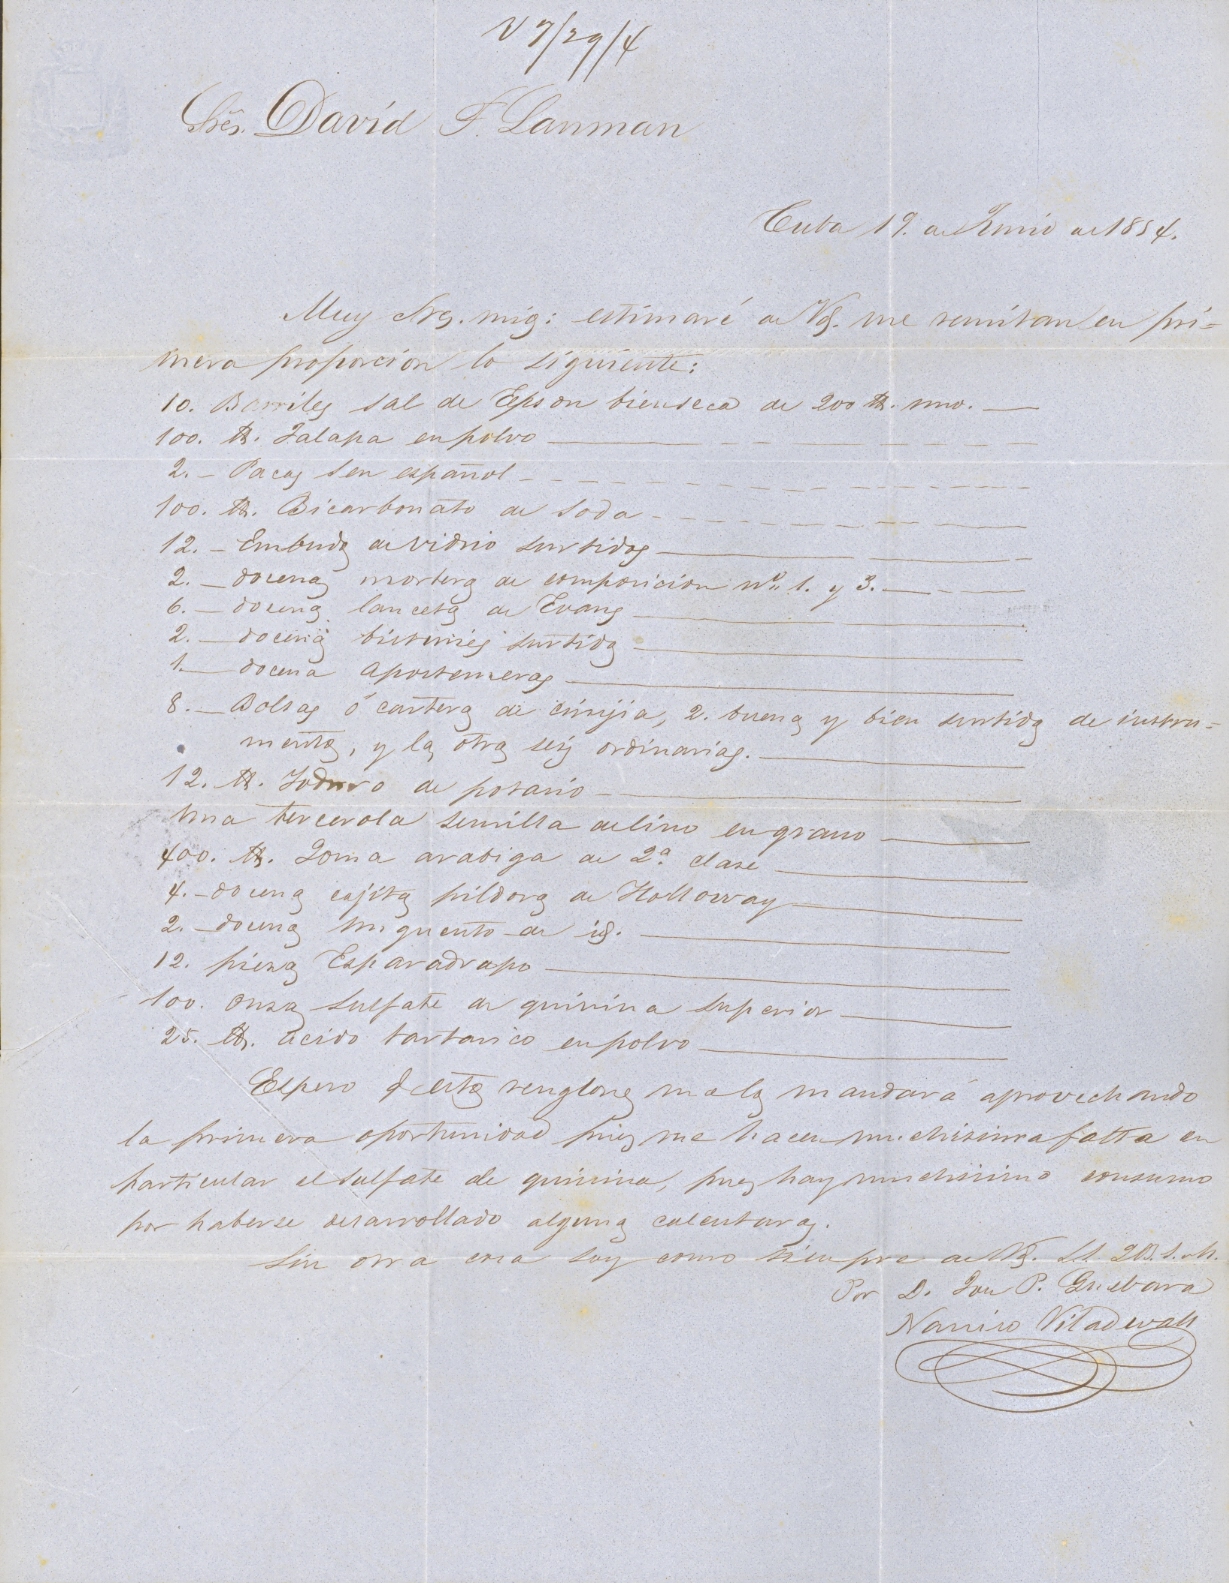 V 7/29/4
Srēs. David F. Lanman
Cuba 19. de Junio de 1854.
Muy Srs. mis: estimaré de Vs. me remitan en pri=
mera proporcion lo siguiente:
10. Barriles sal de Epson bien seca de 200 lb. uno.
100. lb. Jalapa en polvo
2. - Pacas Sen español
100. lb. Bicarbonato de Soda
12. - Embudos de vidrio surtidos
2. - docenas morteros de composicion nos. 1. y 3.
6. - docenas lancetas de Evans
2. - docenas bisturies surtidos
1. - docena apostemeros
8. - Bolsas ó carteras de cirujia, 2. buenas y bien surtidas de instru=
mentos, y las otras seis ordinarias.
12. lb. Ioduro de potasio
Una tercerola semilla de lino en grano
400. lb. Goma arabiga de 2a. clase
4. - docenas cajitas pildoras de Holloway
2. - docenas unguento de id.
12. piezas Esparadrapo
100. onzas sulfate de quinina superior
25. lb. acido tartarico en polvo
Espero q estos renglones me los mandará aprovechando
la primera oportunidad pues me hacen muchisima falta en
particular el sulfate de quinina, pues hay muchisimo consumo
por haberse desarrollado algunas calenturas.
Sin otra cosa soy como siempre de Vs. SS. Q.B.S.M.
Por D. José P. Guebara
Narciso Viladevall